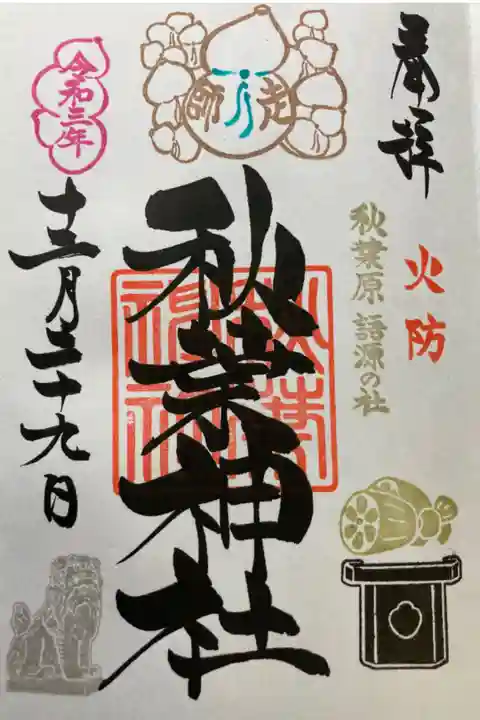 奉拝
火防
秋葉原 語源の社
走師
秋葉神社
秋葉神社
令和三年
十二月二十九日